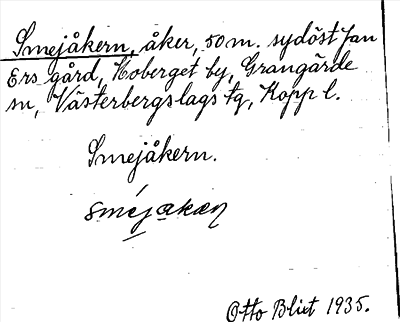 Smejåkern, åker, 50 m. sydöst Jan
Ers gård, Hoberget by, Grangärde
sn, Västerbergslags tg, Kopp l.
Smejåkern.
Otto Blixt 1935.